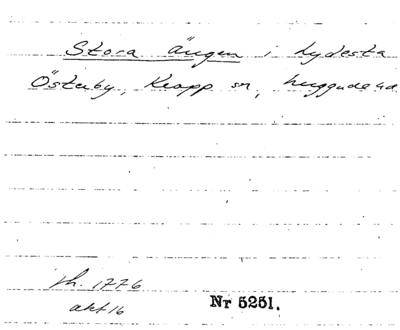 Stora ängen i Lydesta
Österby, Kropp sn, Luggude hd
sh. 1776
akt 16
Nr 5251.